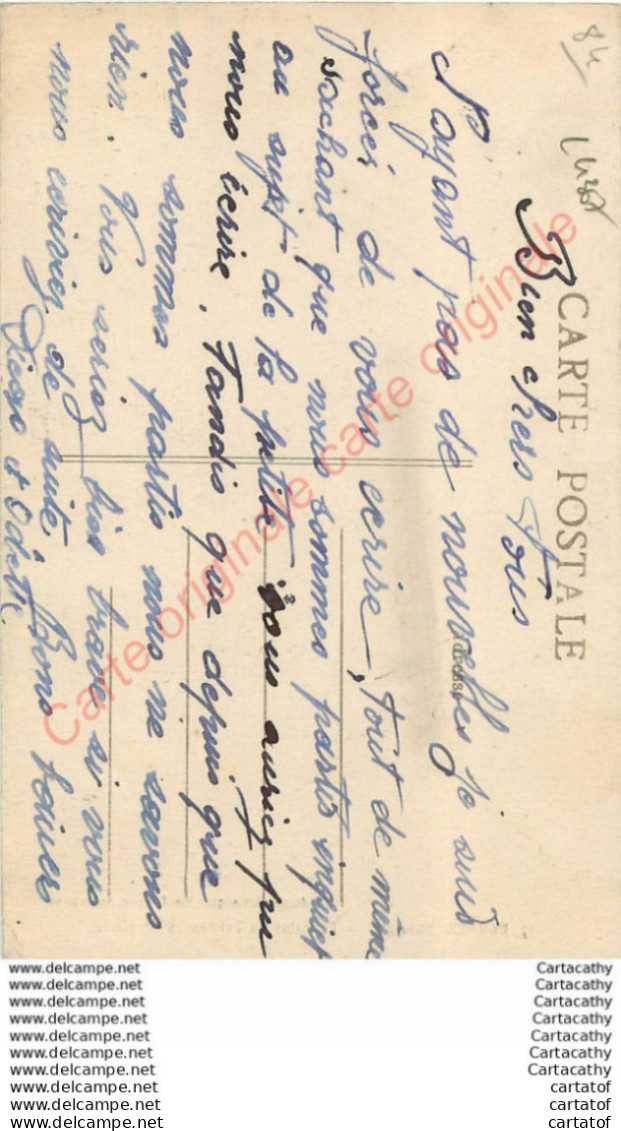 84
CARTE POSTALE
Bien chers Tous
N'ayant pas de nouvelles je suis
forcés de vous ecrire, Tout de même
sachant que nous sommes partis inquiet
au sujet de la petite vous auriez pu
nous écrire, Tandis que depuis que
nous sommes partis nous ne savons
rien. Vous seriez bien brave si vous
nous ecriviez de suite, Bons baisers
Diego et Odette
Adresse
Carte originale carte originale
www.delcampe.net Cartacathy
www.delcampe.net Cartacathy
www.delcampe.net Cartacathy
www.delcampe.net Cartacathy
www.delcampe.net Cartacathy
www.delcampe.net Cartacathy
www.delcampe.net Cartacathy
www.delcampe.net cartatof
www.delcampe.net cartatof
www.delcampe.net cartatof